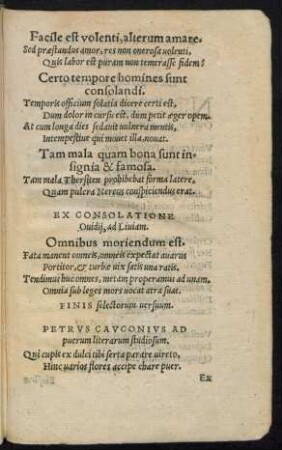 Facile est volenti, alterum amare.
Sed præstandus amor, res non onerosa uolenti,
Quis labor est puram non temerasse fidem?
Certo tempore homines sunt
consolandi.
Temporis officium solatia dicere certi est,
Dum dolor in cursu est, dum petit æger opem.
At cum longa dies sedauit uulnera mentis,
Intempestiue qui mouet illa, nouat.
Tam mala quam bona sunt in-
signia & famosa.
Tam mala Thersiten prohibebat forma latere,
Quam pulcra Nereus conspiciendus erat.
EX CONSOLATIONE
Ouidij, ad Liuiam.
Omnibus moriendum est.
Fata manent omneis, omneis expectat auarus
Portitor, & turbæ uix satis una ratis.
Tendimus huc omnes, metam properamus ad unam.
Omnia sub leges mors uocat atra suas.
FINIS selectorum uersuum.
PETRVS CAVCONIVS AD
puerum literarum studiosum.
Qui cupis ex dulci tibi serta parare uireto,
Hinc uarios flores accipe chare puer.
Ex